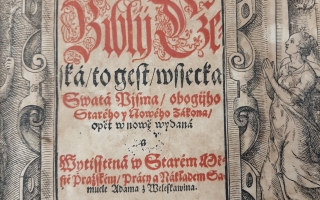 Biblij Cže-
ská / to gest / wssecka
Swatá Pjsma / obogijho
Starého y Nowého Zákona /
opět w nowě wydaná
a
Wytisstěná w Starém Mě-
stě Pražském / Prácy a Nákladem Sa-
muele Adama z Weleslawjna.